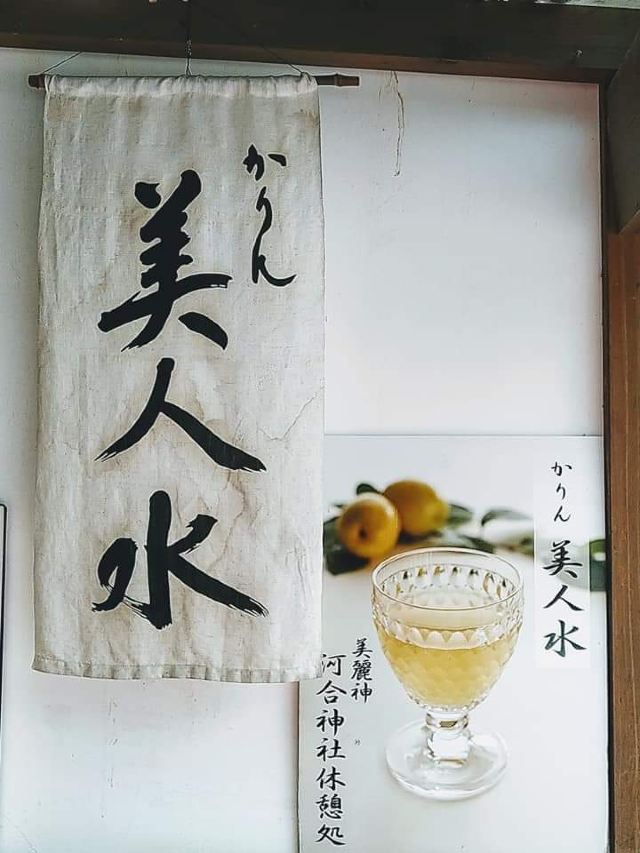 かりん
美人水
かりん 美人水
美麗神
河合神社休憩処